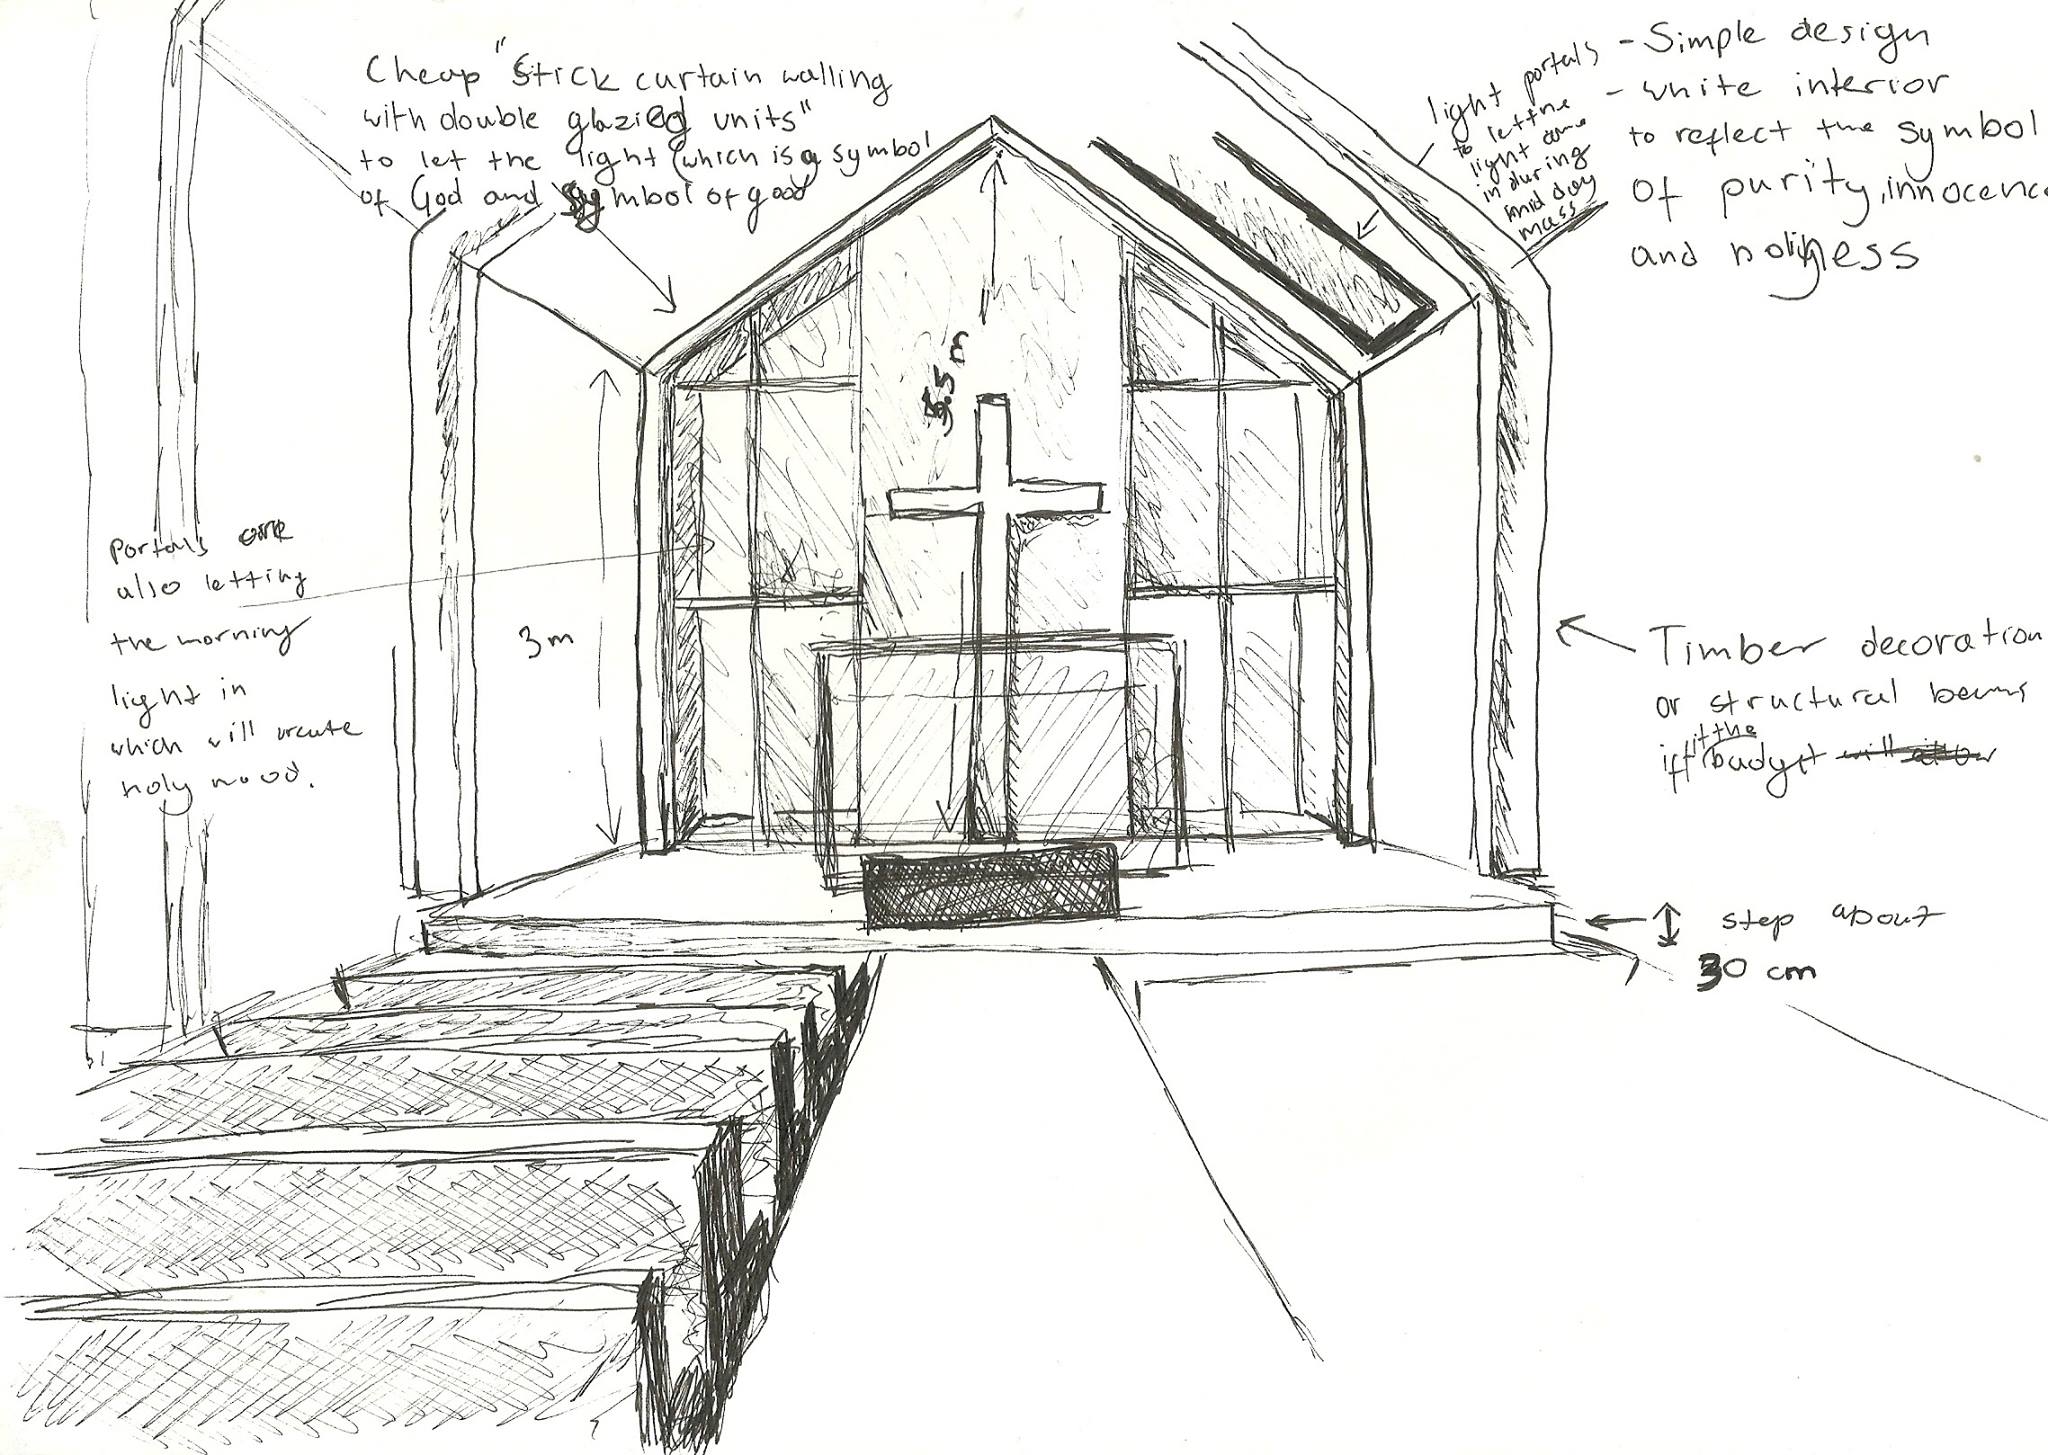 Cheap "Stick curtain walling
with double glazied units"
to let the light (which is a symbol
of God and symbol of good
light portals
to let the
light come
in during
mid day
mass
- Simple design
- white interior
to reflect the symbol
of purity, innocence
and holiness
5.5 m
3 m
portals are
also letting
the morning
light in
which will create
holy mood.
Timber decoration
or structural beams
if the
budget
step about
30 cm